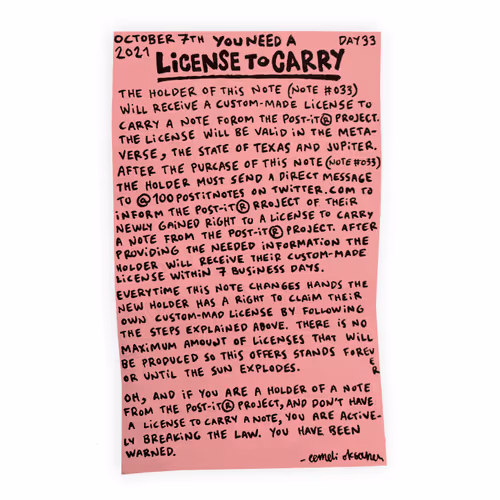 OCTOBER 7TH YOU NEED A DAY 33
2021 LICENSE TO CARRY
THE HOLDER OF THIS NOTE (NOTE #033)
WILL RECEIVE A CUSTOM-MADE LICENSE TO
CARRY A NOTE FOROM THE POST-IT® PROJECT.
THE LICENSE WILL BE VALID IN THE META-
VERSE, THE STATE OF TEXAS AND JUPITER.
AFTER THE PURCASE OF THIS NOTE (NOTE #033)
THE HOLDER MUST SEND A DIRECT MESSAGE
TO @100POSTITNOTES ON TWITTER.COM TO
INFORM THE POST-IT® RROJECT OF THEIR
NEWLY GAINED RIGHT TO A LICENSE TO CARRY
A NOTE FROM THE POST-IT® PROJECT. AFTER
PROVIDING THE NEEDED INFORMATION THE
HOLDER WILL RECEIVE THEIR CUSTOM-MADE
LICENSE WITHIN 7 BUSINESS DAYS.
EVERYTIME THIS NOTE CHANGES HANDS THE
NEW HOLDER HAS A RIGHT TO CLAIM THEIR
OWN CUSTOM-MAD LICENSE BY FOLLOWING
THE STEPS EXPLAINED ABOVE. THERE IS NO
MAXIMUM AMOUNT OF LICENSES THAT WILL
BE PRODUCED SO THIS OFFERS STANDS FOREVER
OR UNTIL THE SUN EXPLODES.
OH, AND IF YOU ARE A HOLDER OF A NOTE
FROM THE POST-IT® PROJECT, AND DON'T HAVE
A LICENSE TO CARRY A NOTE, YOU ARE ACTIVE-
LY BREAKING THE LAW. YOU HAVE BEEN
WARNED.